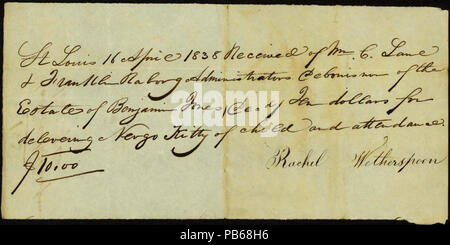 St Louis 16 April 1838 Received of Wm C. Lane
& Franklin Raborg Administrators debonisnon of the
Estate of Benjamin Jones, Ten dollars for
delivering Negro Kitty of child and attendance.
$10.00
Rachel Wetherspoon
alamy
PB68H6